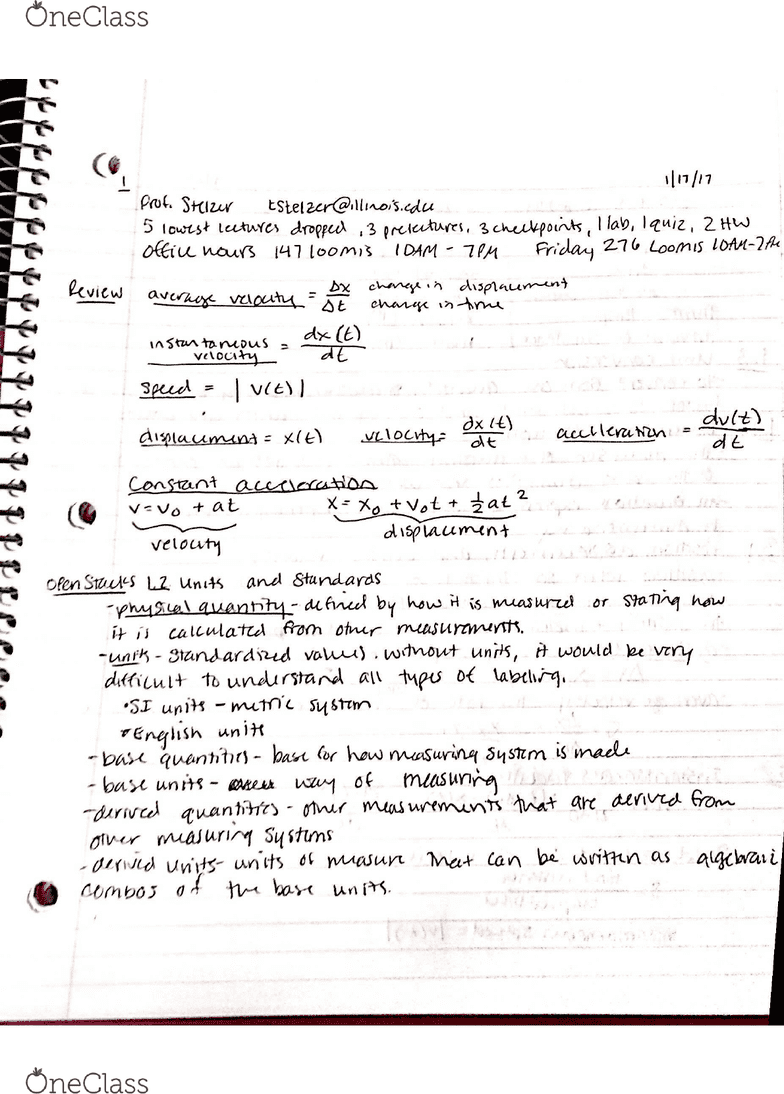 OneClass
1
1/17/17
Prof. Stelzer tstelzer@illinois.edu
5 lowest lectures dropped, 3 prelectures, 3 checkpoints, 1 lab, 1 quiz, 2 HW
Office hours 147 Loomis 10AM - 7PM Friday 276 Loomis 10AM-7PM
Review average velocity = Δx/Δt change in displacement / change in time
instantaneous velocity = dx(t)/dt
Speed = |v(t)|
displacement = x(t) velocity = dx(t)/dt acceleration = dv(t)/dt
Constant acceleration
v = v₀ + at x = x₀ + v₀t + ½at²
velocity displacement
OpenStacks 1.2 Units and Standards
-physical quantity - defined by how it is measured or stating how
it is calculated from other measurements.
-units - standardized values. without units, it would be very
difficult to understand all types of labeling.
•SI units - metric system
•English units
-base quantities - base for how measuring system is made
-base units - way of measuring
-derived quantities - other measurements that are derived from
other measuring systems
-derived units - units of measure that can be written as algebrai
combos of the base units.
OneClass